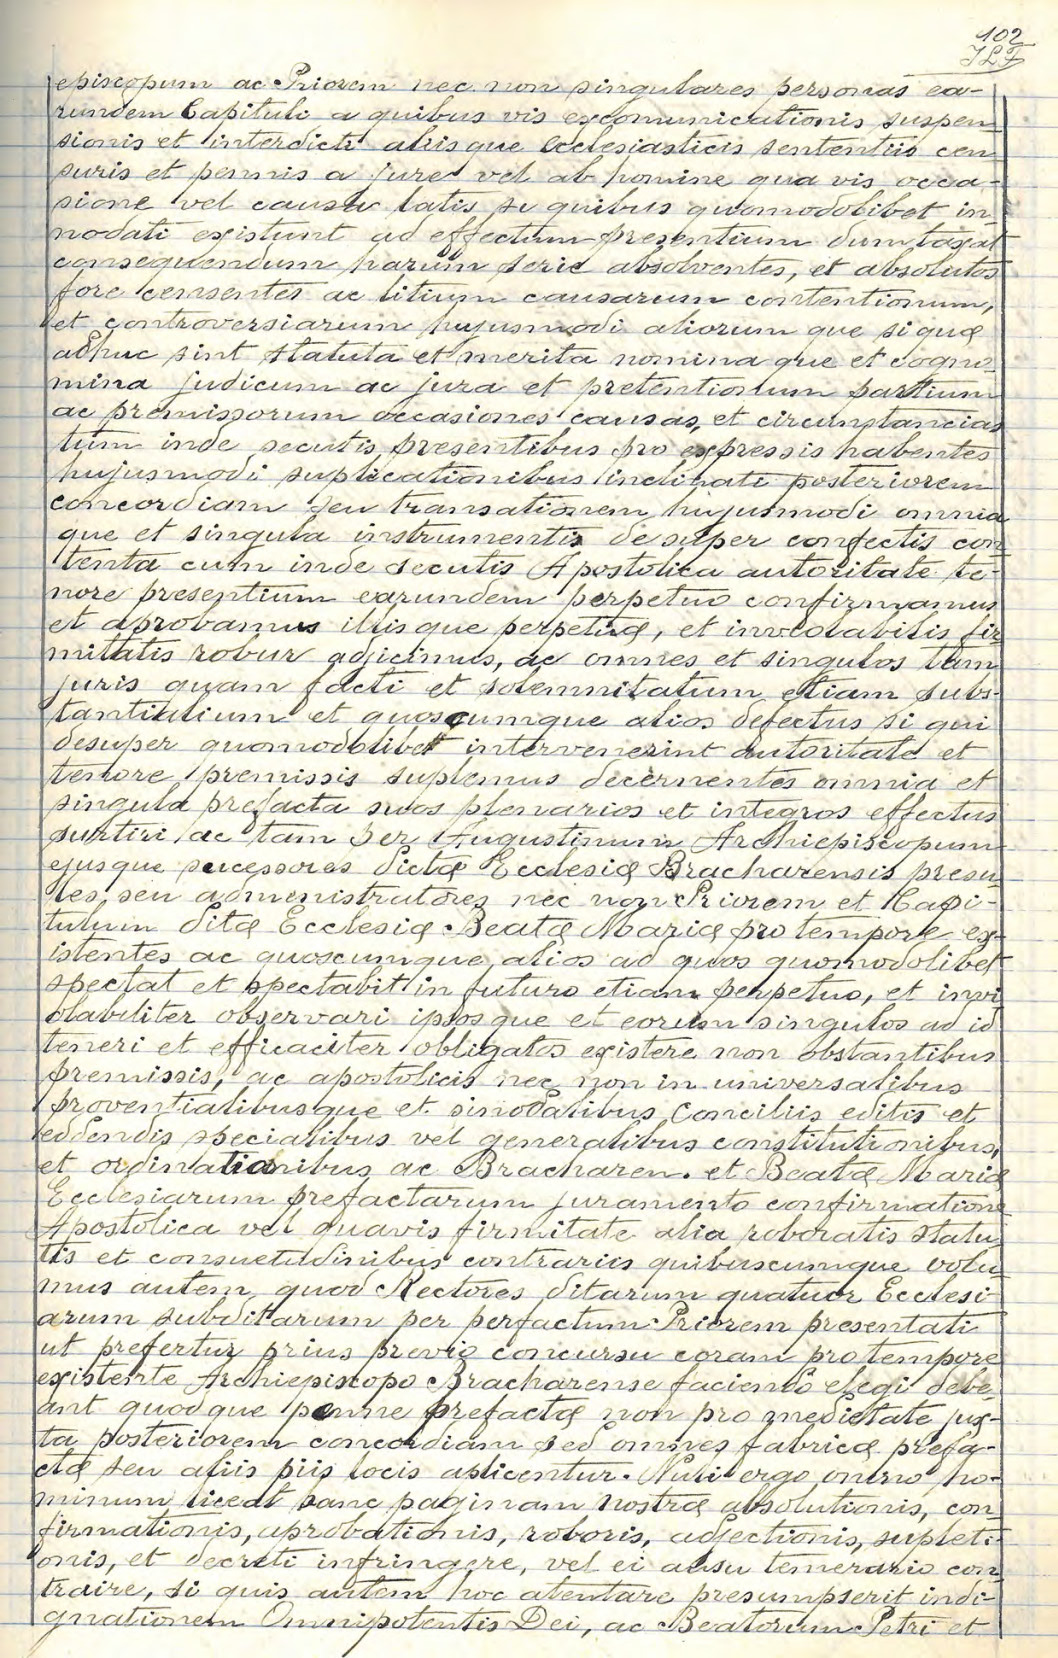 102
JLF
episcopum ac Priorem nec non singulares personas ea-
rundem Capituli a quibus vis excomunicationis suspen
sionis et interdicti aliisque ecclesiasticis sententiis cen
suris et pennis a jure vel ab homine qua vis occa-
sione vel causa latis si quibus quomodolibet in
nodati existunt ad effectum presentium dum taxat
consequendum harum serie absolventes, et absolutos
fore censentes ac litium causarum contentionum,
et controversiarum hujusmodi aliorum que si quæ
adhuc sint statuta et merita nomina que et cogno
mina judicum ac jura et pretentionum partium
ac premissorum occasiones causas, et circunstancias
tum inde secutis, presentibus pro expressis habentes
hujusmodi suplicationibus inclinati posteriorem
concordiam seu transationem hujusmodi omnia
que et singula instrumentis desuper confectis con
tenta cum inde secutis Apostolica autoritate te-
nore presentium earundem perpetuo confirmamus
et aprobamus illis que perpetuæ, et inveolabilis fir
mitatis robur adjicimus, ac omnes et singulos tam
juris quam facti et solemnitatum etiam subs-
tantialium et quoscumque alios defectus si qui
desuper quomodolibet intervenerint autoritate et
tenore premissis suplemus decernentes omnia et
singula prefacta suos plenarios et integros effectus
surtiri ac tam Augustinum Archiepiscopum
ejusque sucessores dictæ Ecclesiæ Bracharensis presu
les, seu admenistratores nec non Priorem et Capi-
tulum ditæ Ecclesiæ Beatæ Mariæ pro tempore ex-
istentes ac quoscumque alios ad quos quomodolibet
spectat et spectabit in futuro etiam perpetuo, et invi
olabiliter observari ipsos que et eorum singulos ad id
teneri et efficaciter obligatos existere non obstantibus
premissis, ac apostolicis nec non in universalibus
proventialibusque et sinodalibus Conciliis editis et
eddendis specialibus vel generalibus constitutionibus,
et ordinationibus ac Bracharen. et Beatæ Mariæ
Ecclesiarum prefactarum juramento confirmatione
Apostolica vel quavis firmitate alia roboratis statu
tis et consuetudinibus contrariis quibuscumque volu
mus autem quod Rectores ditarum quatuor Ecclesi
arum subditarum per perfactum Priorem presentati
ut prefertur prius previo concursu coram pro tempore
existente Archiepiscopo Bracharense faciendo elegi debe
ant quod que penne prefactæ non pro medietate jux-
ta posteriorem concordiam sed omnes fabricæ prefa-
ctæ seu aliis piis locis aplicentur. Nuli ergo onino ho-
minum liceat hanc paginam nostræ absolutionis, con
firmationis, aprobationis, roboris, adjectionis, supleti
onis, et decreti infringere, vel ei ausu temerario con
traire, si quis autem hoc atentare presumpserit indi-
gnationem Omnipotentis Dei, ac Beatorum Petri et